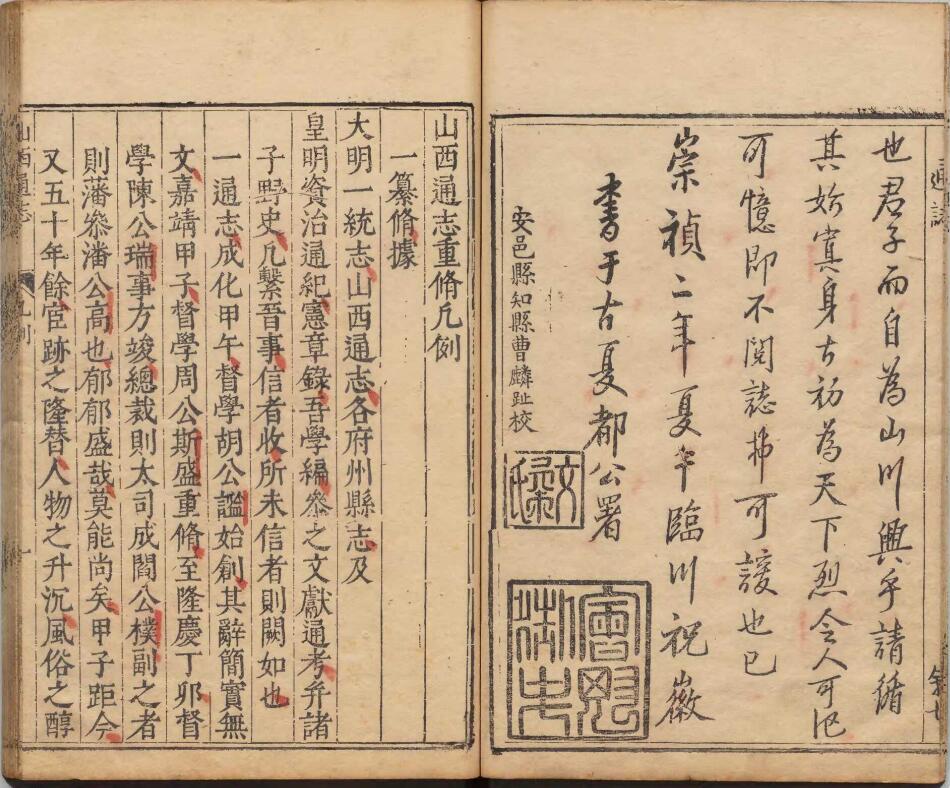 通誌
也君子而自為山川興乎請循
其始寘身古初為天下烈令人可记
可憶即不閱誌可諼也已
崇禎二年夏臨川祝徽
書于古夏都公署
安邑縣知縣曹麟趾校
會魁御史
山西通志重脩凡例
一纂脩據
大明一統志山西通志各府州縣志及
皇明資治通紀憲章錄吾學編叅之文獻通考并諸
子野史凡繫晉事信者收所未信者則闕如也
一通志成化甲午督學胡公謐始創其辭簡實無
文嘉靖甲子督學周公斯盛重脩至隆慶丁卯督
學陳公瑞事方竣總裁則太司成閻公樸副之者
則藩叅潘公高也郁郁盛哉莫能尚矣甲子距今
又五十年餘宦跡之隆替人物之升沉風俗之醇
山西通志 凡例 一